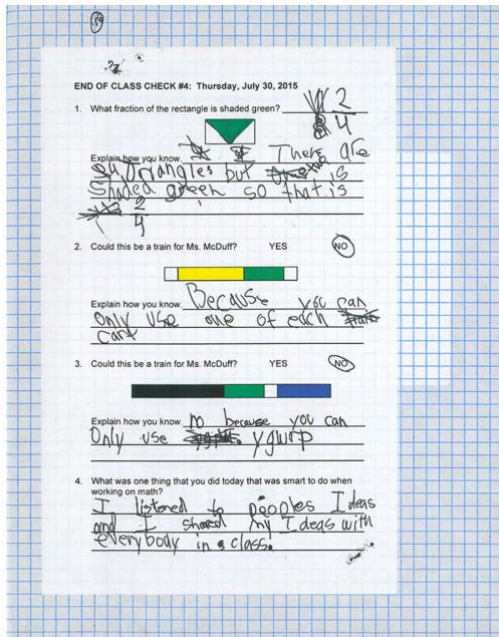 END OF CLASS CHECK #4: Thursday, July 30, 2015
1. What fraction of the rectangle is shaded green?
2
4
Explain how you know. There are
4 Triangles but is
Shaded green so that is
2
4
2. Could this be a train for Ms. McDuff? YES NO
Explain how you know. Because you can
only use one of each
cart
3. Could this be a train for Ms. McDuff? YES NO
Explain how you know. no because you can
Only use ygwrp
4. What was one thing that you did today that was smart to do when
working on math?
I listened to peoples Ideas
and I shared my Ideas with
everybody in class.